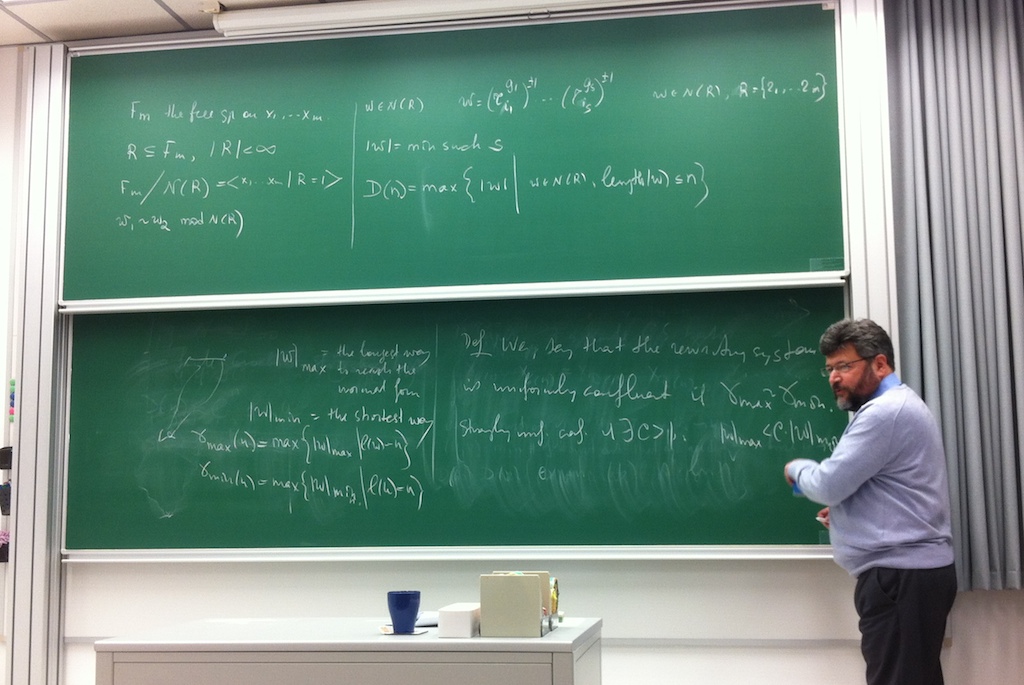 Fm the free gp on x1, ... xm.
R ⊆ Fm, |R| < ∞
Fm/N(R) = <x1, ... xm | R = 1>
w1 ~ w2 mod N(R)
w ∈ N(R) w = (r_{i1}^{g1})^{±1} ... (r_{is}^{gs})^{±1}
|w| = min such s
D(n) = max { |w| | w ∈ N(R), length(w) ≤ n }
w ∈ N(R), R = {r1, ... rn}
|w|max = the longest way
to reach the
normal form
|w|min = the shortest way
γmax(n) = max { |w|max | ℓ(w) = n }
γmin(n) = max { |w|min | ℓ(w) = n }
Def We say that the rewriting system
is uniformly confluent if γmax ~ γmin.
Strongly unif. conf. if ∃ C > 1. |w|max < C·|w|min